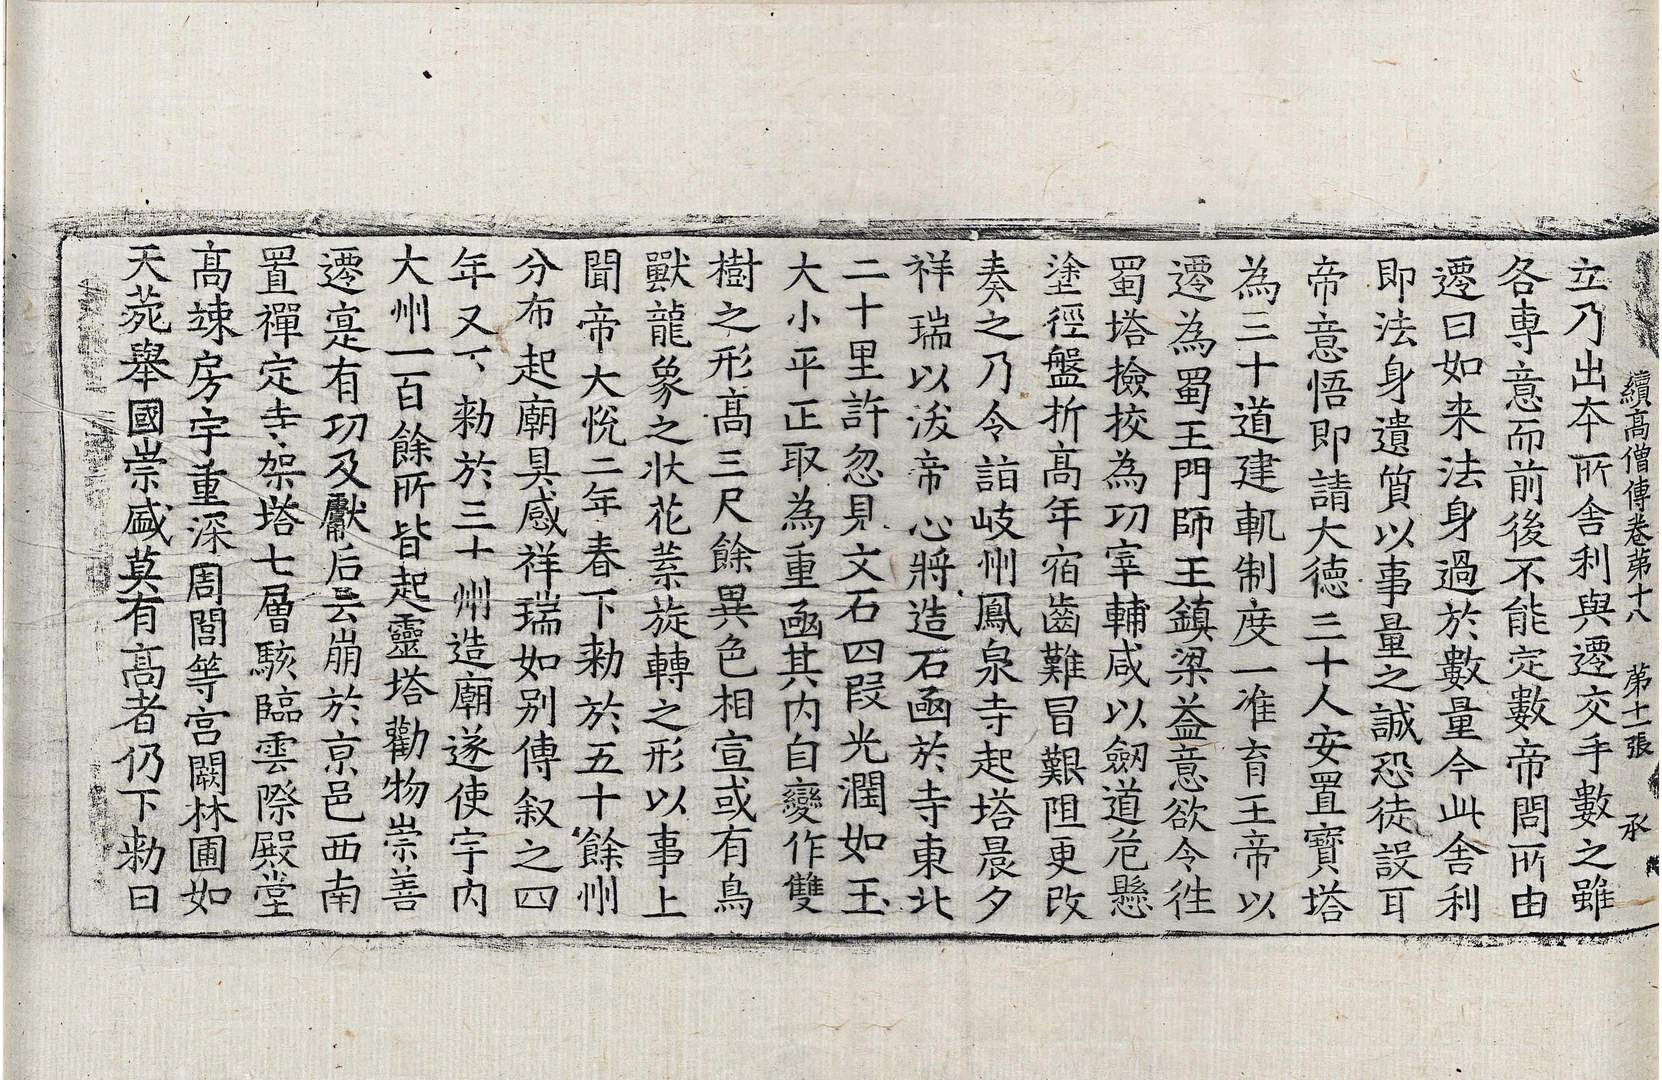 續高僧傳卷苐十八 苐十一張 承
立乃出夲所舎利與遷交手數之雖
各專意而前後不能定數帝問所由
遷曰如来法身過於數量今此舎利
即法身遺質以事量之誠恐徒設耳
帝意悟即請大德三十人安置寶塔
為三十道建軌制度一准育王帝以
遷為蜀王門師王鎮梁益意欲令徃
蜀塔撿挍為功宰輔咸以劒道危懸
塗徑盤折髙年宿齒難冒艱阻更改
奏之乃令詣岐州鳳泉寺起塔晨夕
祥瑞以沷帝心將造石函於寺東北
二十里許忽見文石四叚光潤如玉
大小平正取為重函其内自變作雙
樹之形髙三尺餘異色相宣或有鳥
獸龍象之状花蘂旋轉之形以事上
聞帝大恱二年春下勑於五十餘州
分布起廟具感祥瑞如别傳叙之四
年又下勑於三十州造廟遂使宇内
大州一百餘所皆起靈塔勸物崇善
遷寔有功及獻后云崩於京邑西南
置禪定寺架塔七層駭臨雲際殿堂
髙竦房宇重深周閭等宫闕林圃如
天苑舉國崇盛莫有髙者仍下勑曰